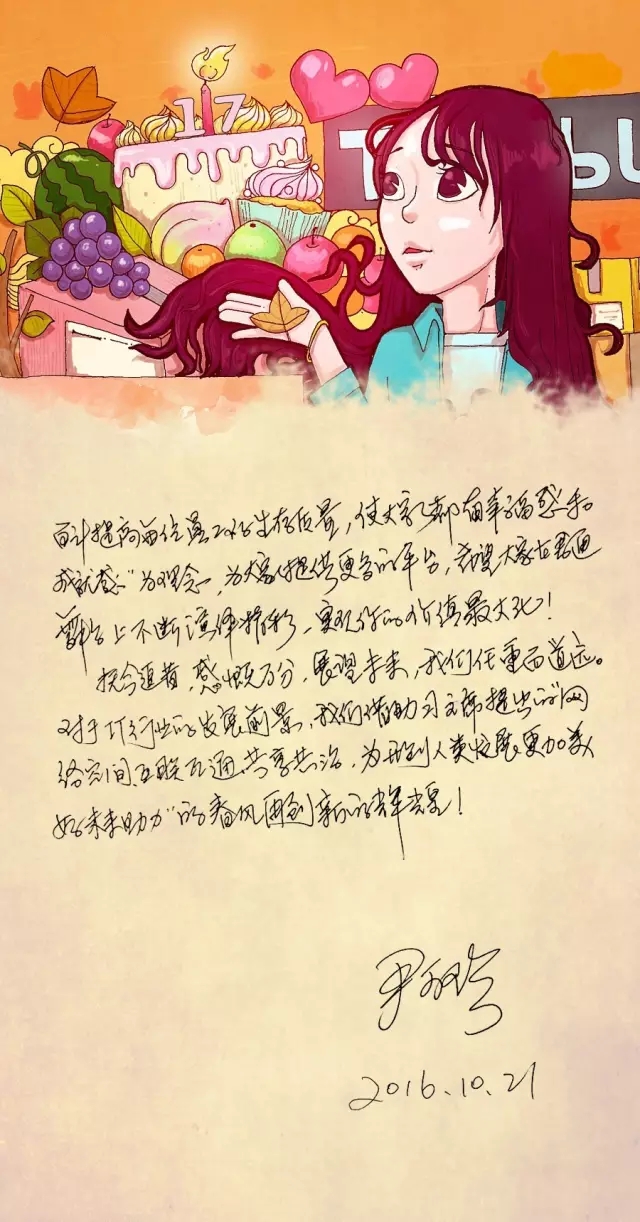 17
百计提高每位员工的生存质量，使大家都有幸福感与
成就感"为理念，为大家提供更多的平台，希望大家在君通
舞台上不断演绎精彩，实现你的价值最大化！
抚今追昔，感慨万分，展望未来，我们任重而道远。
对于IT行业的发展前景，我们借助习主席提出的"网
络空间互联互通、共享共治，为开创人类发展更加美
好未来助力"的春风再创新的辉煌！
2016.10.21